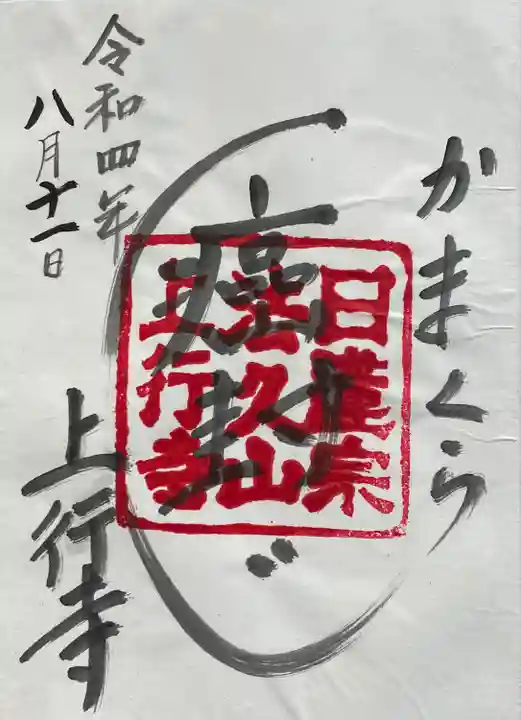 かまくら
癌封じ
日蓮宗
法久山
上行寺
令和四年
八月十一日
上行寺